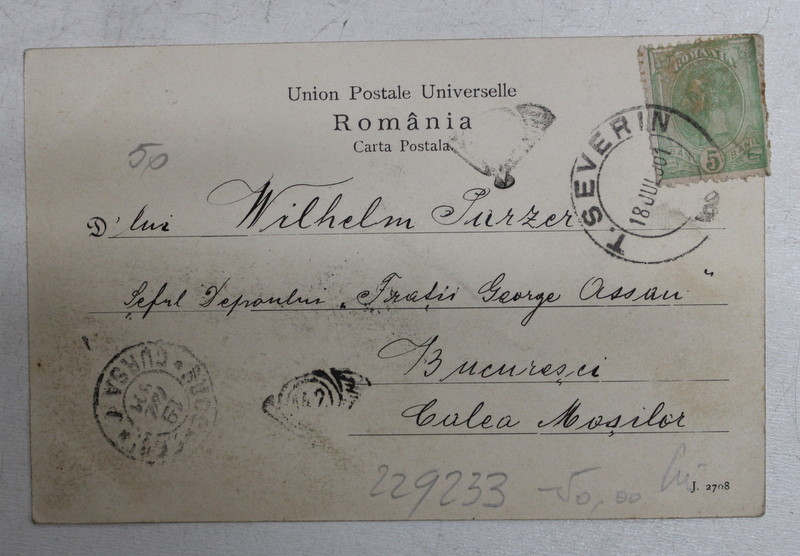 ROMANIA
5
BANI
Union Postale Universelle
România
Carta Postala
T. SEVERIN
18 JUL 901
50
D' lui Wilhelm Purzer
Șeful Depoului „Frații George Assan"
Bucuresci
Calea Moșilor
CURSA
142
229233 -50,00 lei
J. 2708